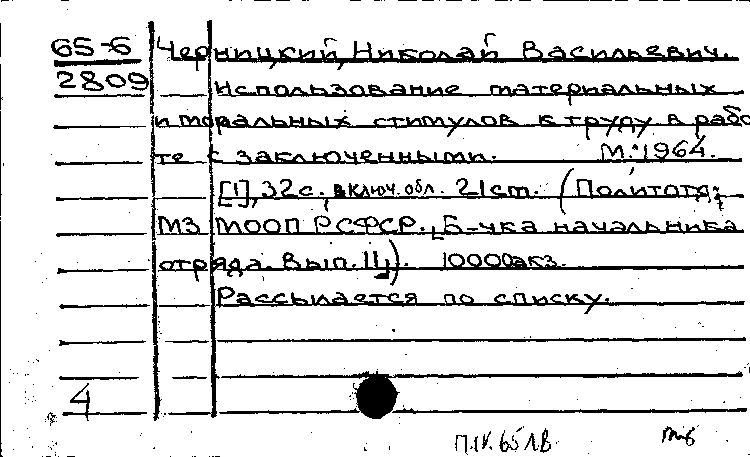 65-6 Черницкий, Николай Васильевич.
2809 Использование материальных
и моральных стимулов к труду в рабо
те с заключенными. М. 1964.
[1], 32 с., включ. обл. 21 см. (Политотд.
МЗ МООП РСФСР. Б-чка начальника
отряда. Вып. II). 10000 экз.
Рассылается по списку.
4
П.IV.65 ЛВ